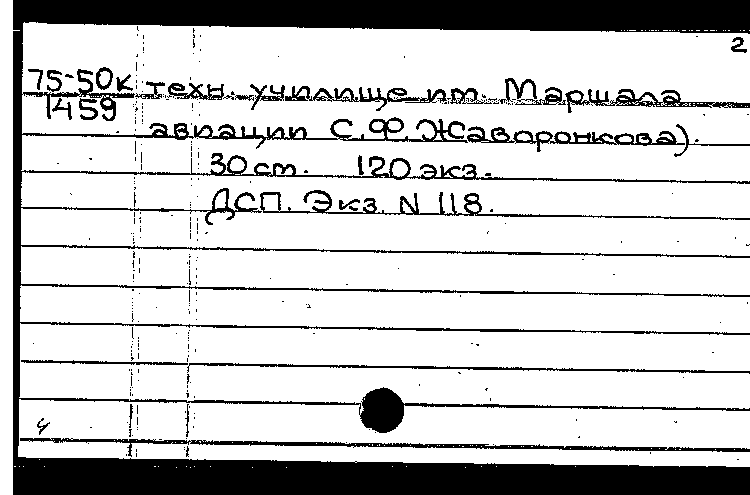 2
75-50к техн. училище им. Маршала
1459
авиации С.Ф. Жаворонкова).
30 ст. 120 экз.
ДСП. Экз. N 118.
4